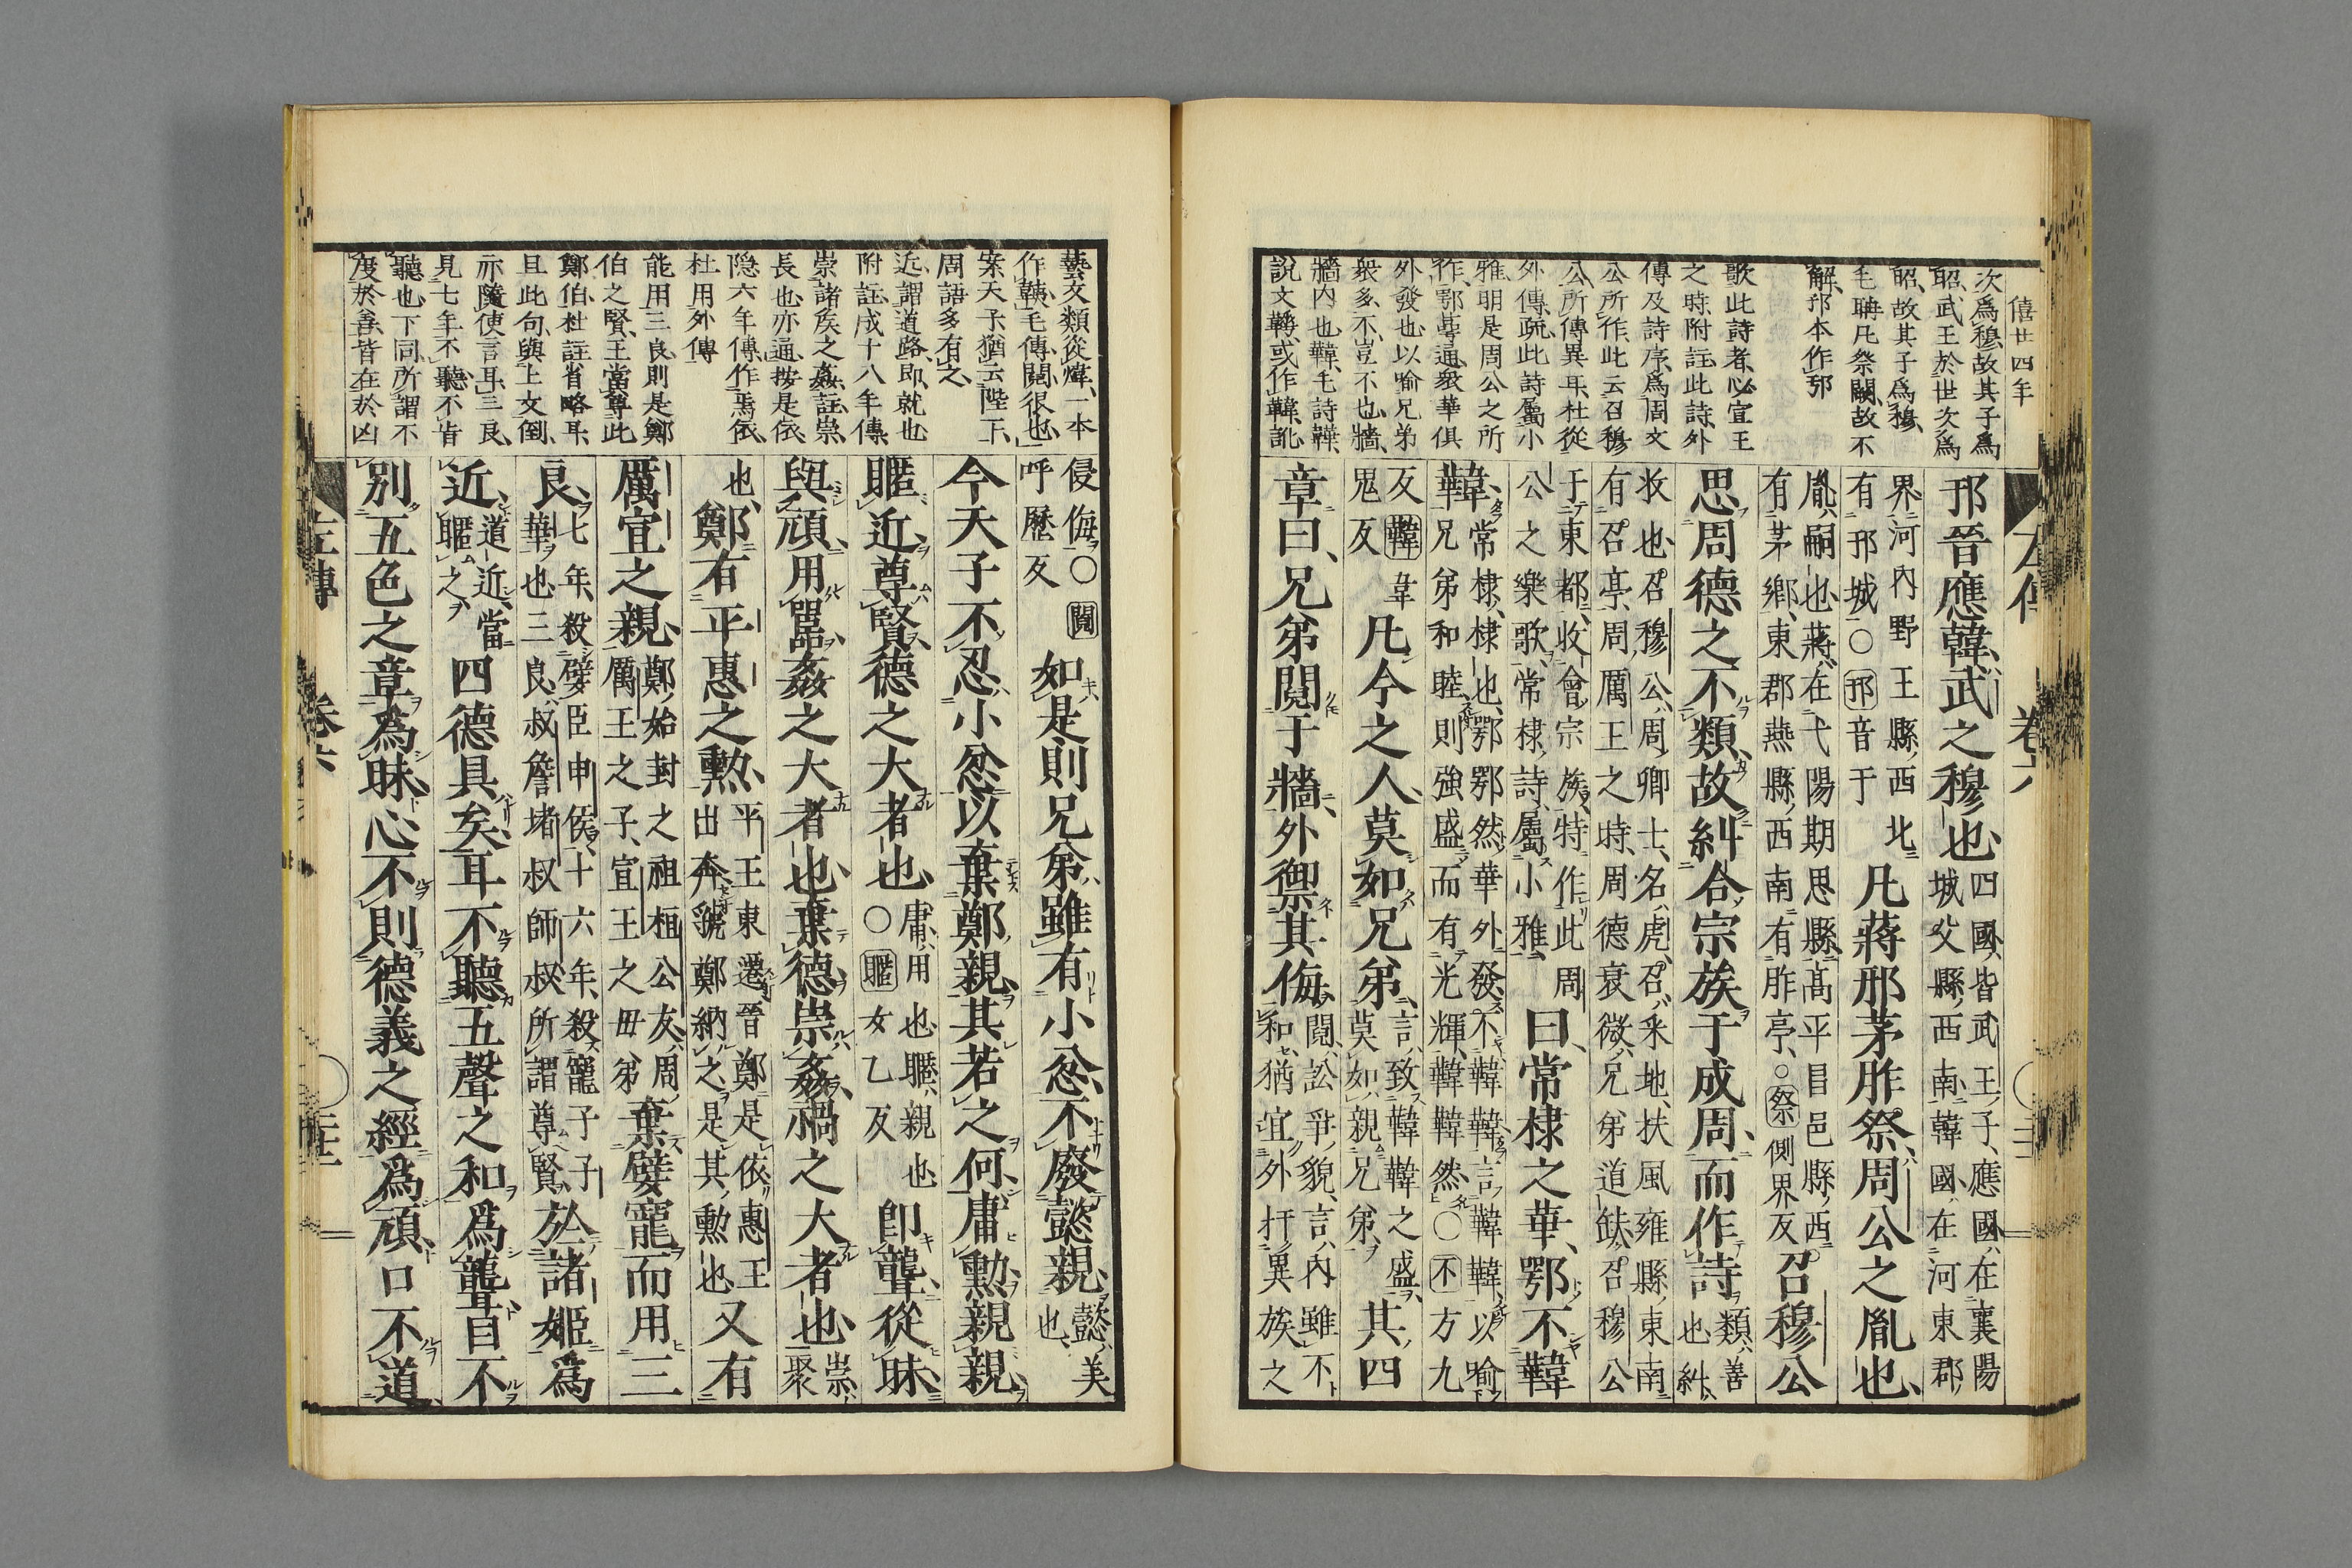 僖廿四年
次爲穆、故其子爲
昭、武王於世次爲
昭、故其子爲穆、
毛聃凡祭闕、故不
解、邘本作邘
歌此詩者、必宣王
之時、附註、此詩、外
傳及詩序、爲周文
公所作、此云召穆
公、所傳異耳、杜從
外傳、疏、此詩屬小
雅、明是周公之所
作、鄂蕚通、衆華俱
外發也、以喻兄弟
衆多、不、豈不也、牆、
牆内也、韡、毛詩韡、
說文韡、或作韡、訛
左傳 卷六
邘晉應韓、武之穆也、四國、皆武王子、應國、在襄陽城父縣、西南、韓國、在河東郡
界、河内野王縣、西北有邘城○邘音于凡蔣邢茅胙祭、周公之胤也、
胤、嗣也、蔣、在弋陽期思縣、高平昌邑縣、西有茅鄉、東郡燕縣、西南有胙亭、○祭側界反召穆公
思周德之不類、故糾合宗族于成周、而作詩類、善也、糾、
收也、召穆公、周卿士、名虎、召、采地、扶風雍縣、東南有召亭、周厲王之時、周德衰微、兄弟道缺、召穆公
于東都、收會宗族、特作此周公之樂歌、常棣、詩屬小雅、曰、常棣之華、鄂不韡
韡、常棣、棣也、鄂鄂然華外發、不韡韡、言韡韡、以喻兄弟和睦、則強盛而有光輝、韡韡然○不方九
反韡韋鬼反凡今之人、莫如兄弟、言致韡韡之盛、莫如親兄弟、其四
章曰、兄弟鬩于牆、外禦其侮、鬩、訟爭貌、言、内雖不和、猶宜外扞異族之
藝文類從煒、一本
作韍、毛傳、鬩、很也、
案天子、猶云陛下、
周語多有之
近、謂道路、即、就也
附註、成十八年傳、
崇諸侯之姦、註、崇、
長也、亦通、按是依、
隱六年傳、作焉依、
杜用外傳
能用三良、則是鄭
伯之賢、王當尊此
鄭伯、杜註省略耳、
且此句、與上文倒、
亦隨便言耳、三良、
見七年、不聽、不肯
聽也、下同、所謂不
度於善、皆在於凶
侵侮○鬩呼歷反如是則兄弟雖有小忿、不廢懿親、懿、美也、
今天子不忍小忿以棄鄭親、其若之何、庸勳、親親、
暱近、尊賢、德之大者也、庸、用也、暱、親也○暱女乙反即聾、從昧、
與頑、用嚚、姦之大者也、棄德崇姦、禍之大者也、崇、聚
也、鄭有平惠之勳、平王東遷、晉鄭是依、惠王出奔、虢鄭納之、是其勳也又有
厲宣之親、鄭始封之祖桓公友、周厲王之子、宣王之毋弟棄嬖寵而用三
良、七年、殺嬖臣申侯、十六年、殺寵子子華也、三良、叔詹堵叔師叔、所謂尊賢、於諸姬爲
近、道近、當暱之、四德具矣、耳不聽五聲之和爲聾、目不
別五色之章爲昧、心不則德義之經爲頑、口不道
左傳 卷六